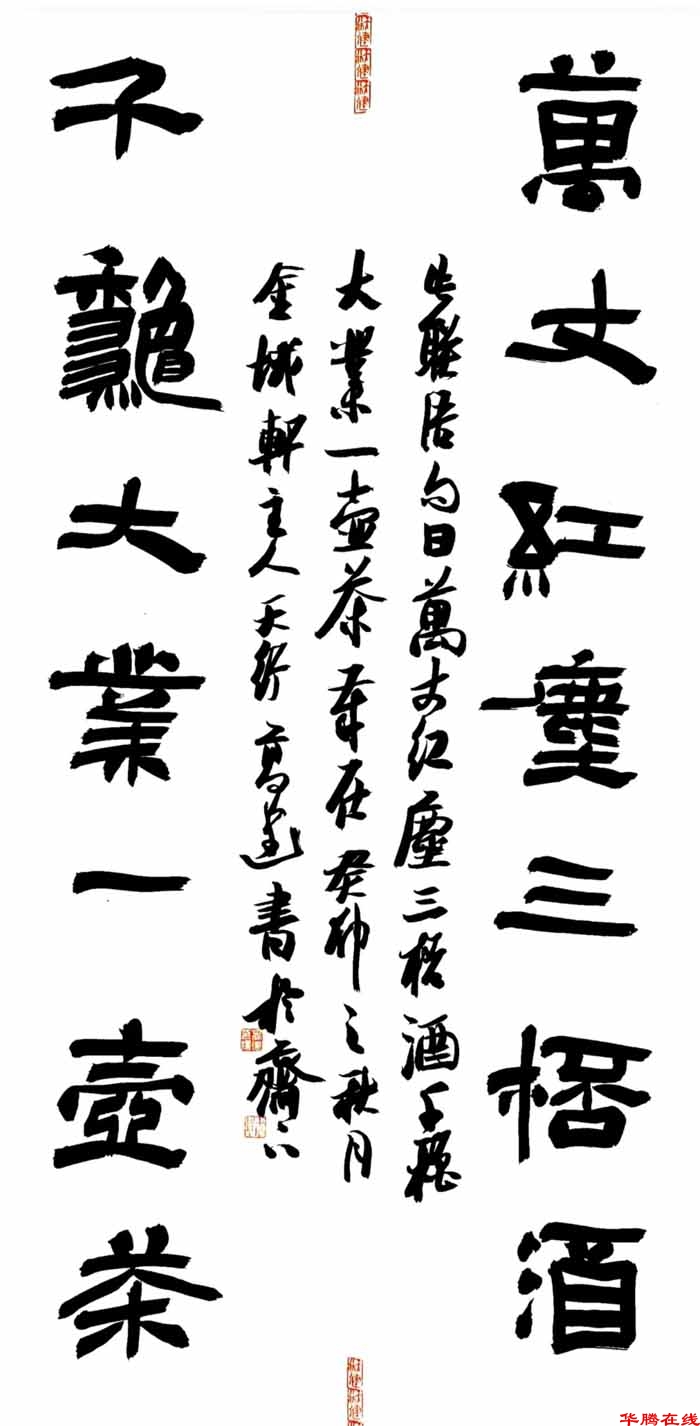 萬丈紅塵三桮酒
千龝大業一壺茶
此聯句曰萬丈紅塵三桮酒千穐
大業一壺茶歲在癸卯之秋月
金城軒主人天行高建書於齋下
华腾在线